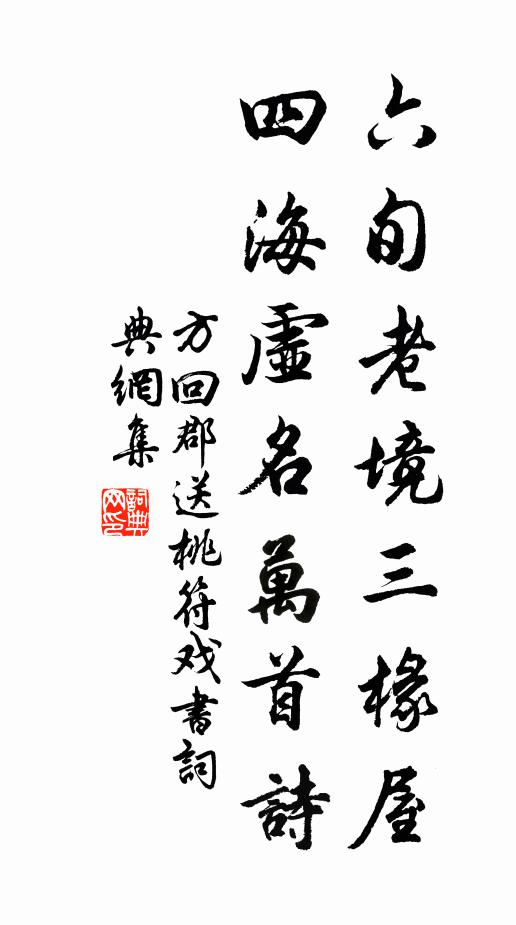 六旬老境三椽屋
四海虛名萬首詩
方回郡送桃符戏書詞
典網集
詞典网印